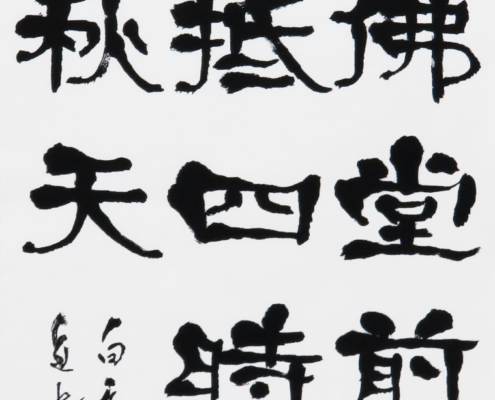 佛堂前
抵四時
秋天
白